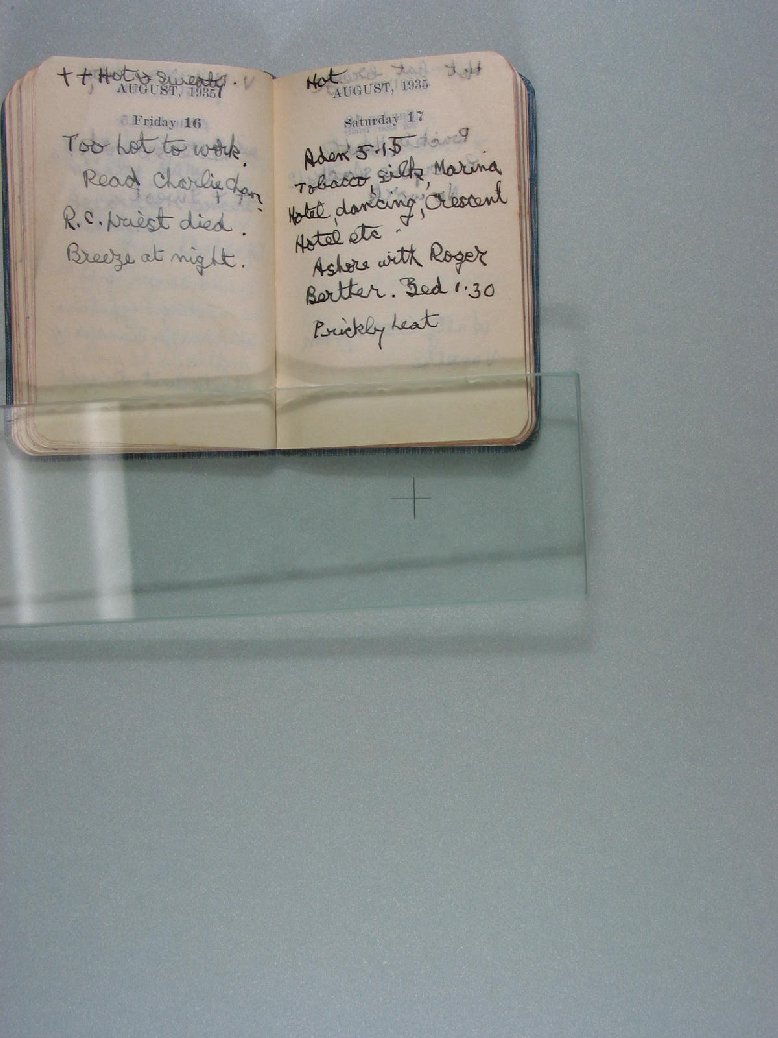 ++ Hot & Sweaty.
AUGUST, 1935
Friday 16
Too hot to work.
Read Charlie Chan.
R.C. priest died.
Breeze at night.
Hot
AUGUST, 1935
Saturday 17
Aden 5.15
Tobacco, silk, Marina
Hotel, dancing, Crescent
Hotel etc.
Ashore with Roger
Berther. Bed 1.30
Prickly heat